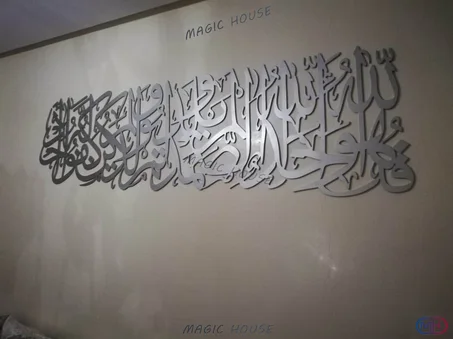 MAGIC HOUSE
قل هو الله احد الله الصمد لم يلد ولم يولد ولم يكن له كفوا احد
MAGIC HOUSE
MAGIC HOUSE